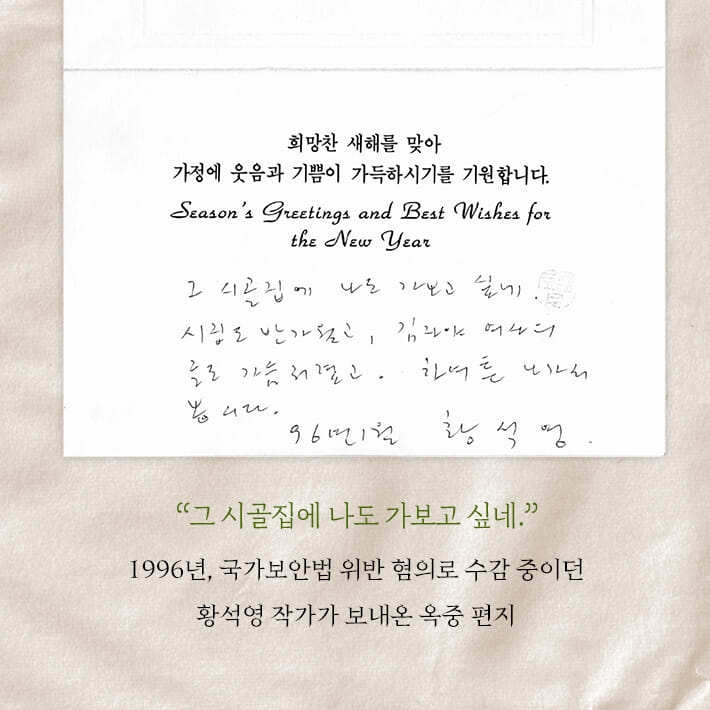 희망찬 새해를 맞아
가정에 웃음과 기쁨이 가득하시기를 기원합니다.
Season's Greetings and Best Wishes for
the New Year
그 시골집에 나도 가보고 싶네.
시집도 반가웠고, 김자야 여사의
글도 가슴 저렸고. 하여튼 나가서
봅시다.
96년1월 황석영.
“그 시골집에 나도 가보고 싶네.”
1996년, 국가보안법 위반 혐의로 수감 중이던
황석영 작가가 보내온 옥중 편지